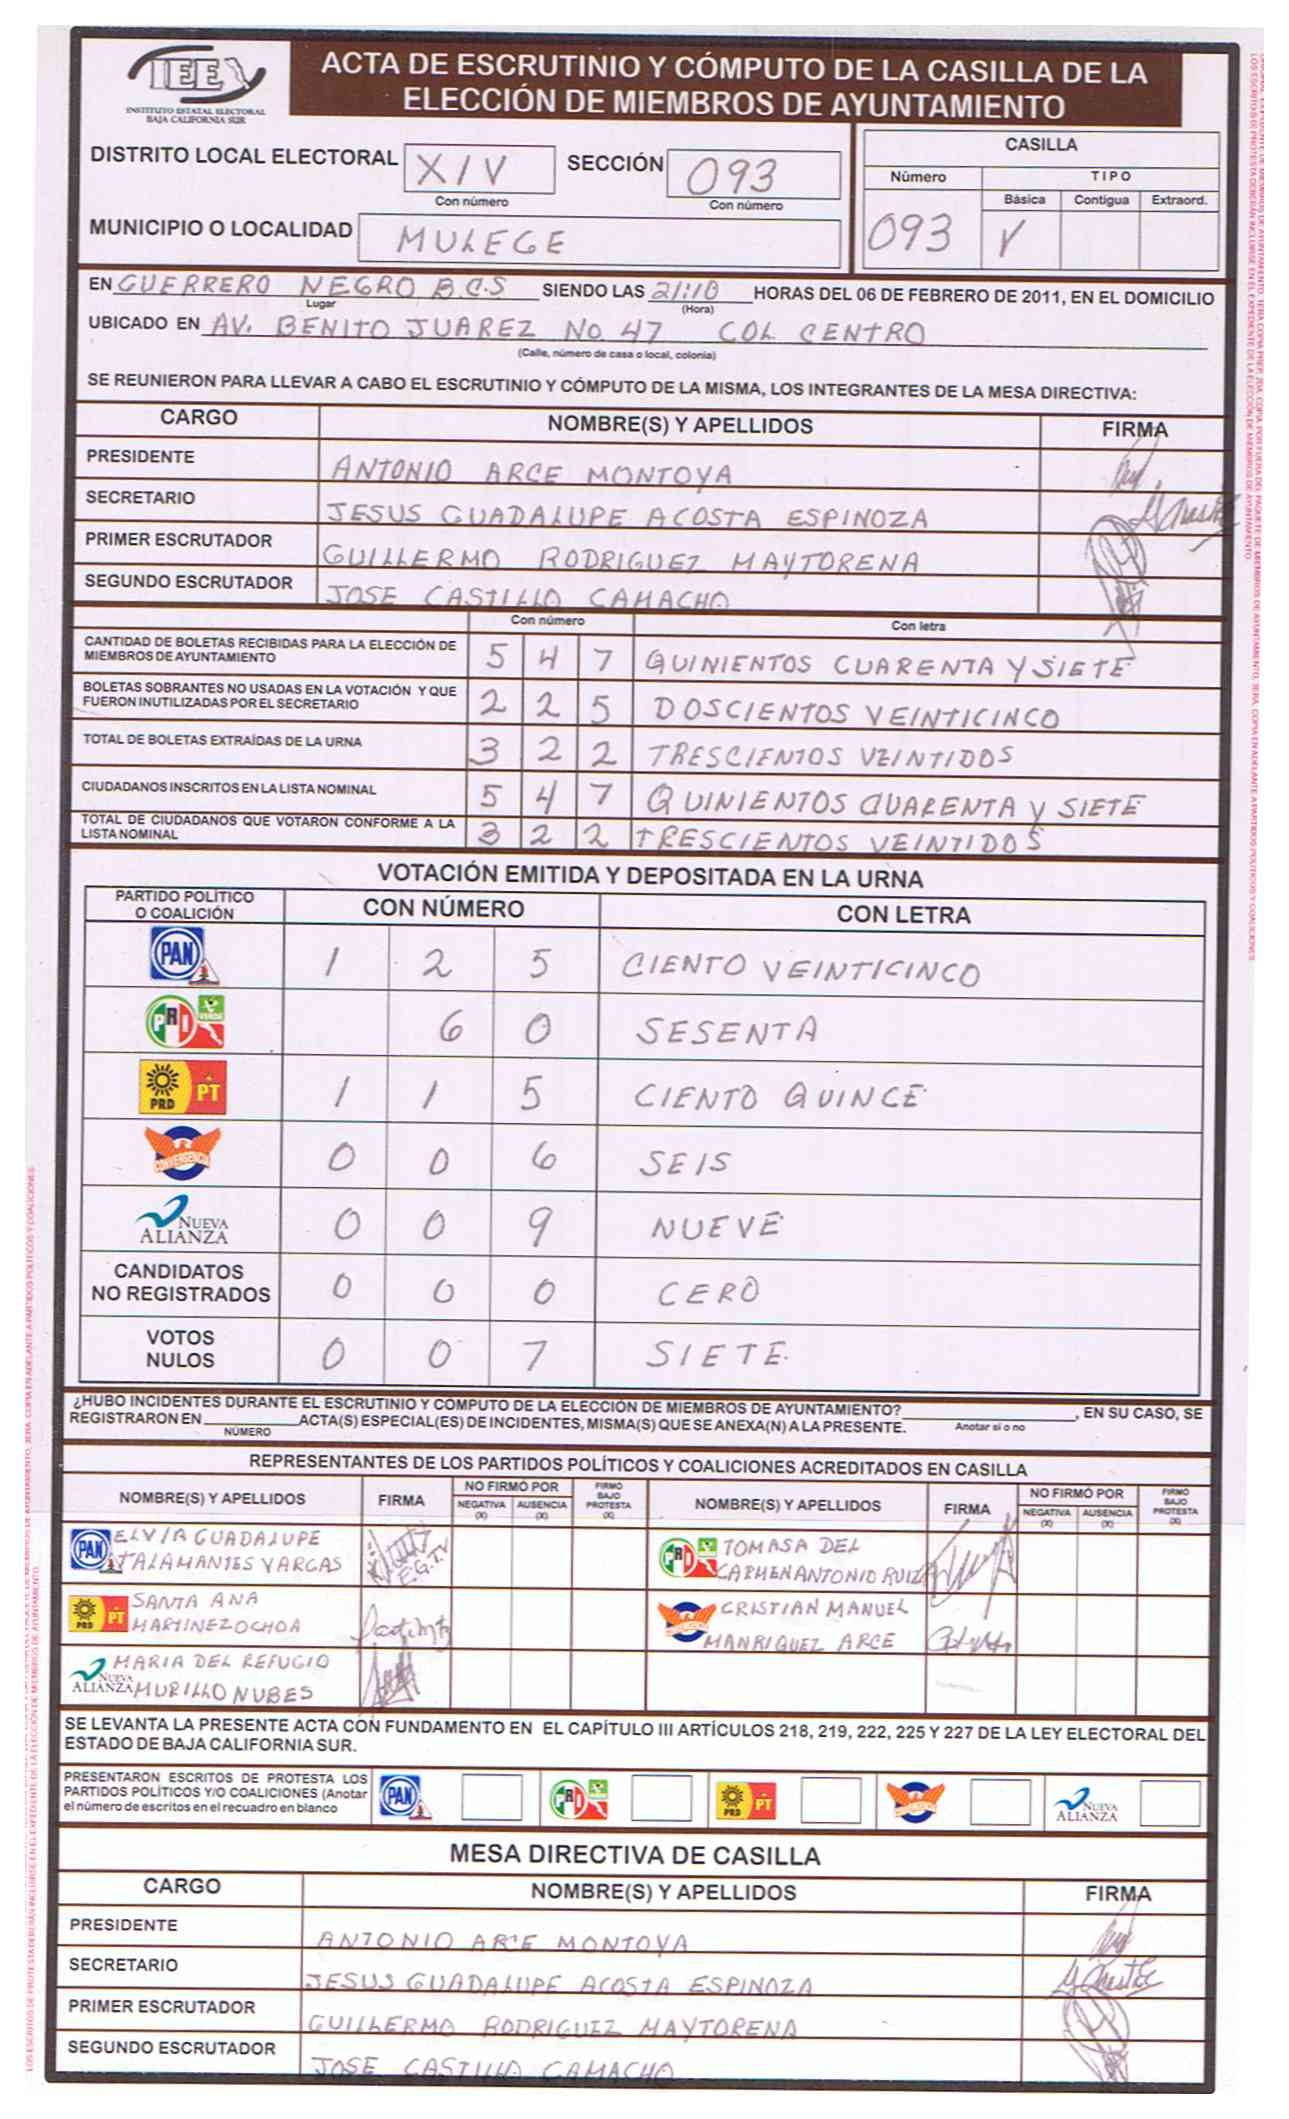 IEE
INSTITUTO ESTATAL ELECTORAL
BAJA CALIFORNIA SUR
ACTA DE ESCRUTINIO Y CÓMPUTO DE LA CASILLA DE LA
ELECCIÓN DE MIEMBROS DE AYUNTAMIENTO
DISTRITO LOCAL ELECTORAL XIV SECCIÓN 093
Con número Con número
MUNICIPIO O LOCALIDAD MULEGE
CASILLA
Número TIPO
Básica Contigua Extraord.
093 V
EN GUERRERO NEGRO B.C.S SIENDO LAS 21:10 HORAS DEL 06 DE FEBRERO DE 2011, EN EL DOMICILIO
Lugar (Hora)
UBICADO EN AV. BENITO JUAREZ No. 47 COL CENTRO
(Calle, número de casa o local, colonia)
SE REUNIERON PARA LLEVAR A CABO EL ESCRUTINIO Y CÓMPUTO DE LA MISMA, LOS INTEGRANTES DE LA MESA DIRECTIVA:
CARGO NOMBRE(S) Y APELLIDOS FIRMA
PRESIDENTE ANTONIO ARCE MONTOYA
SECRETARIO JESUS GUADALUPE ACOSTA ESPINOZA
PRIMER ESCRUTADOR GUILLERMO RODRIGUEZ MAYTORENA
SEGUNDO ESCRUTADOR JOSE CASTILLO CAMACHO
Con número Con letra
CANTIDAD DE BOLETAS RECIBIDAS PARA LA ELECCIÓN DE
MIEMBROS DE AYUNTAMIENTO 5 4 7 QUINIENTOS CUARENTA Y SIETE
BOLETAS SOBRANTES NO USADAS EN LA VOTACIÓN Y QUE
FUERON INUTILIZADAS POR EL SECRETARIO 2 2 5 DOSCIENTOS VEINTICINCO
TOTAL DE BOLETAS EXTRAÍDAS DE LA URNA 3 2 2 TRESCIENTOS VEINTIDOS
CIUDADANOS INSCRITOS EN LA LISTA NOMINAL 5 4 7 QUINIENTOS CUARENTA Y SIETE
TOTAL DE CIUDADANOS QUE VOTARON CONFORME A LA
LISTA NOMINAL 3 2 2 TRESCIENTOS VEINTIDOS
VOTACIÓN EMITIDA Y DEPOSITADA EN LA URNA
PARTIDO POLÍTICO
O COALICIÓN CON NÚMERO CON LETRA
PAN 1 2 5 CIENTO VEINTICINCO
PRI VERDE 6 0 SESENTA
PRD PT 1 1 5 CIENTO QUINCE
CONVERGENCIA 0 0 6 SEIS
NUEVA
ALIANZA 0 0 9 NUEVE
CANDIDATOS
NO REGISTRADOS 0 0 0 CERO
VOTOS
NULOS 0 0 7 SIETE
¿HUBO INCIDENTES DURANTE EL ESCRUTINIO Y CÓMPUTO DE LA ELECCIÓN DE MIEMBROS DE AYUNTAMIENTO? , EN SU CASO, SE
REGISTRARON EN ACTA(S) ESPECIAL(ES) DE INCIDENTES, MISMA(S) QUE SE ANEXA(N) A LA PRESENTE. Anotar si o no
NÚMERO
REPRESENTANTES DE LOS PARTIDOS POLÍTICOS Y COALICIONES ACREDITADOS EN CASILLA
NOMBRE(S) Y APELLIDOS FIRMA NO FIRMÓ POR NEGATIVA (X) AUSENCIA (X) FIRMO BAJO PROTESTA (X) NOMBRE(S) Y APELLIDOS FIRMA NO FIRMÓ POR NEGATIVA (X) AUSENCIA (X) FIRMO BAJO PROTESTA (X)
PAN ELVIA GUADALUPE
TALAMANTES VARGAS E.G.T.V
PRI TOMASA DEL
CARMEN ANTONIO RUIZ
PRD PT SANTA ANA
MARTINEZ OCHOA
CRISTIAN MANUEL
MANRIQUEZ ARCE
NUEVA ALIANZA MARIA DEL REFUGIO
MURILLO NUBES
SE LEVANTA LA PRESENTE ACTA CON FUNDAMENTO EN EL CAPÍTULO III ARTÍCULOS 218, 219, 222, 225 Y 227 DE LA LEY ELECTORAL DEL
ESTADO DE BAJA CALIFORNIA SUR.
PRESENTARON ESCRITOS DE PROTESTA LOS
PARTIDOS POLÍTICOS Y/O COALICIONES (Anotar
el número de escritos en el recuadro en blanco
PAN PRI PRD PT NUEVA ALIANZA
MESA DIRECTIVA DE CASILLA
CARGO NOMBRE(S) Y APELLIDOS FIRMA
PRESIDENTE ANTONIO ARCE MONTOYA
SECRETARIO JESUS GUADALUPE ACOSTA ESPINOZA
PRIMER ESCRUTADOR GUILLERMO RODRIGUEZ MAYTORENA
SEGUNDO ESCRUTADOR JOSE CASTILLO CAMACHO